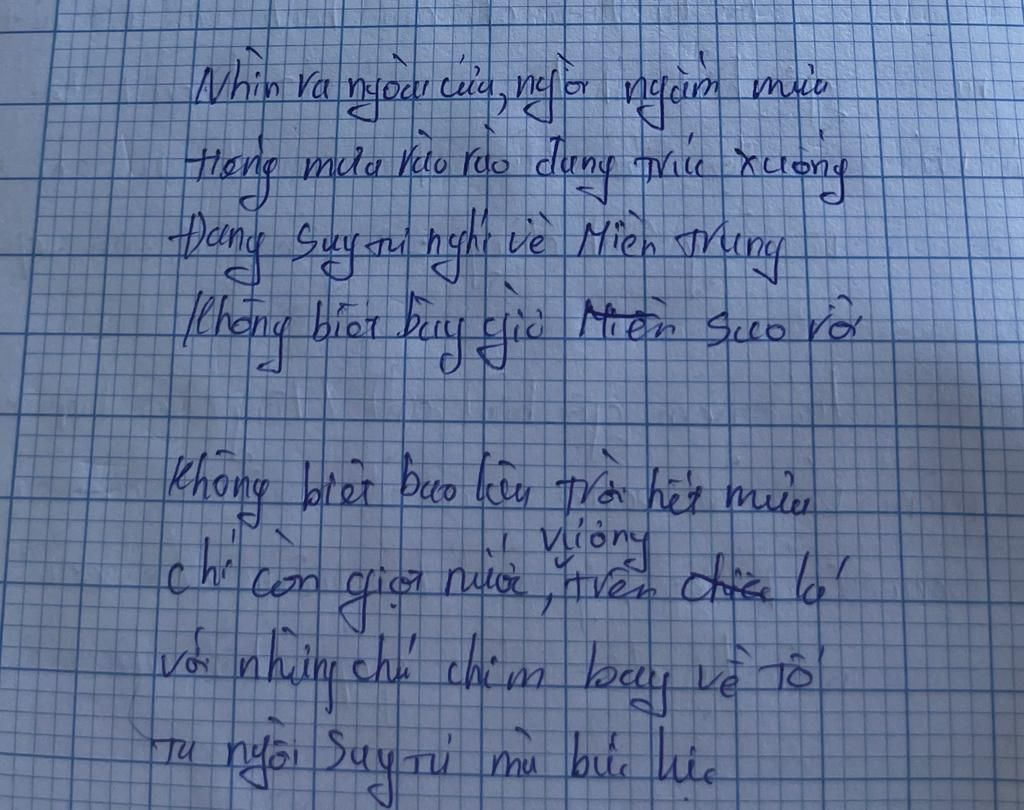 Nhìn ra ngoài cửa, ngồi ngắm mưa
tiếng mưa rào rào đang trút xuống
Đang suy tư nghĩ về Miền Trung
Không biết bây giờ Miền sao rồi
Không biết bao lâu trời hết mưa
chỉ còn giọt nước, vương trên chiếc lá
với những chú chim bay về tổ
Ta ngồi suy tư mà bức lúc